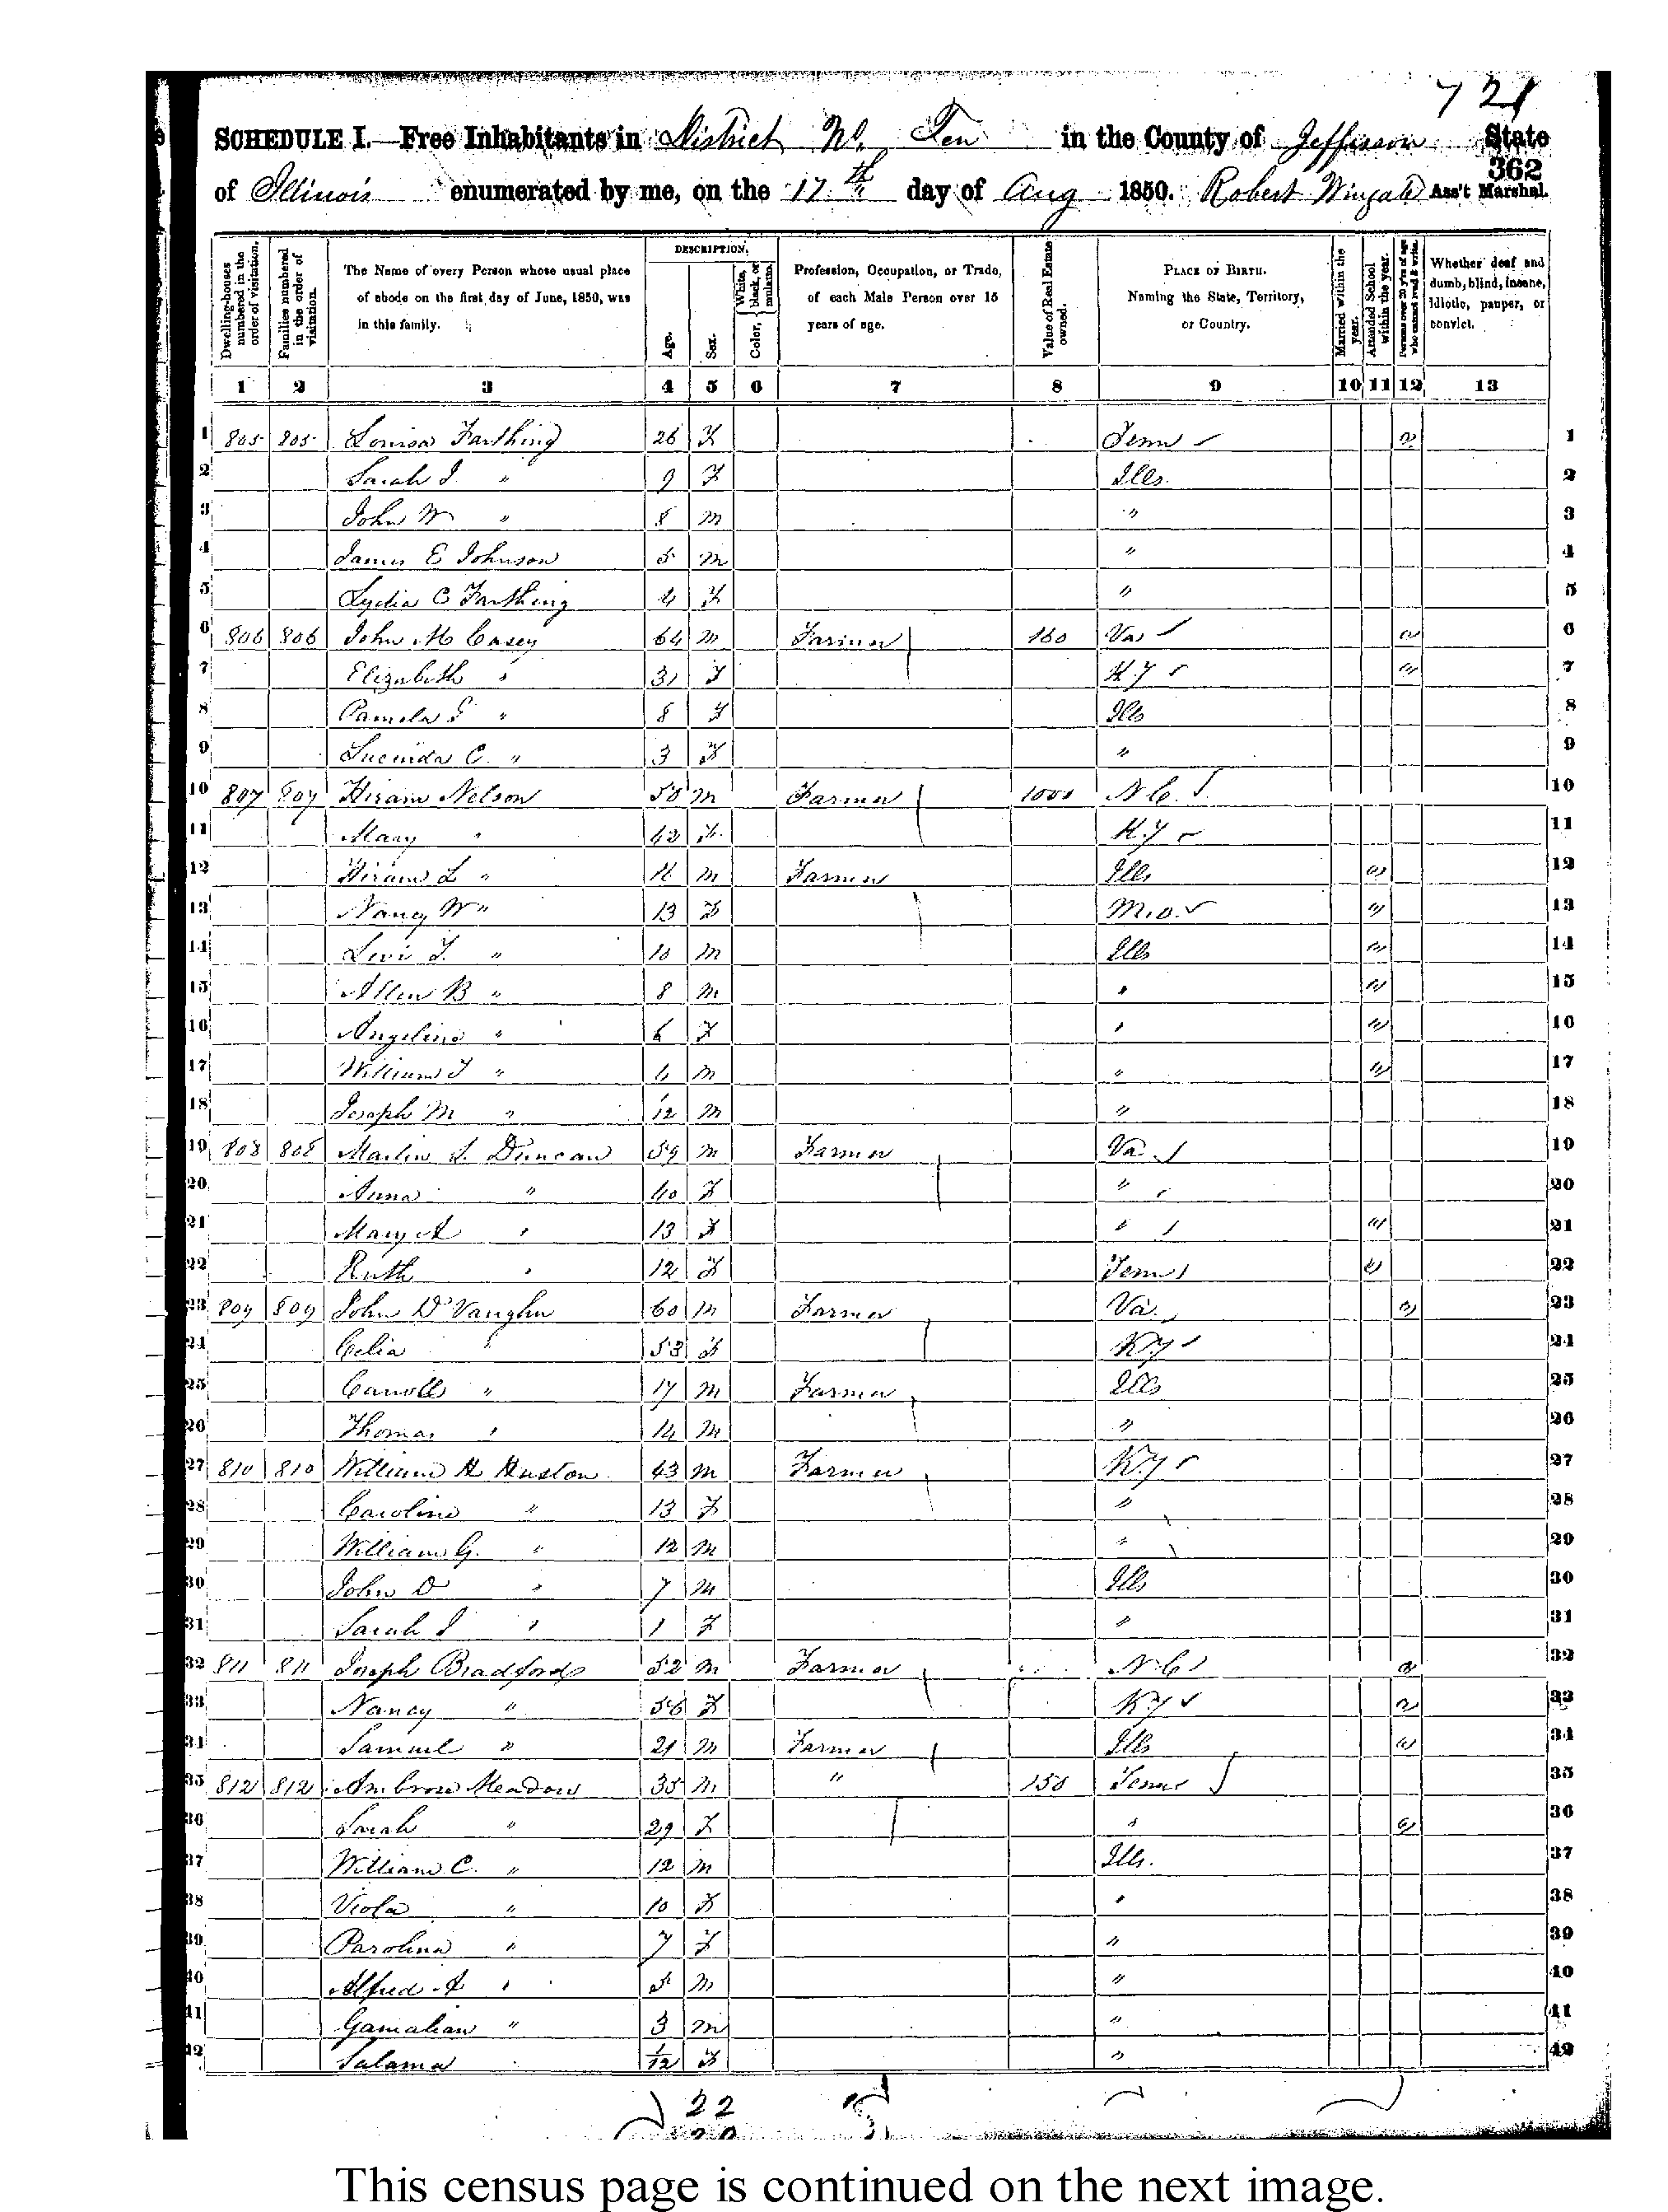 721
SCHEDULE I.—Free Inhabitants in District No. Ten in the County of Jefferson State
362
of Illinois enumerated by me, on the 17th day of Aug 1850. Robert Wingate Ass't Marshal.
Dwelling-houses numbered in the order of visitation. Families numbered in the order of visitation. The Name of every Person whose usual place of abode on the first day of June, 1850, was in this family. DESCRIPTION. Age. Sex. Color, White, black, or mulatto. Profession, Occupation, or Trade, of each Male Person over 15 years of age. Value of Real Estate owned. PLACE OF BIRTH. Naming the State, Territory, or Country. Married within the year. Attended School within the year. Persons over 20 y'rs of age who cannot read & write. Whether deaf and dumb, blind, insane, idiotic, pauper, or convict.
1 2 3 4 5 6 7 8 9 10 11 12 13
1 805 805 Louisa Farthing 26 F Tenn " 1
2 Sarah J. " 9 F Ills. 2
3 John W " 8 m " 3
4 James E Johnson 5 m " 4
5 Lydia C Farthing 4 F " 5
6 806 806 John M Casey 64 m Farmer 160 Va " 6
7 Elizabeth " 31 F K.Y " 7
8 Pamela " 8 F Ills 8
9 Lucinda C. " 3 F " 9
10 807 807 Hiram Nelson 50 m Farmer 1000 N C. 10
11 Mary " 42 F. K.Y 11
12 Hiram L " m Farmer Ills " 12
13 Nancy W " 13 F M.o. " 13
14 Levi T. " 10 m Ills " 14
15 Allen B " 8 m " " 15
16 Angeline " 6 F " " 16
17 William T " 4 m " " 17
18 Joseph M " /12 m " 18
19 808 808 Martin S. Duncan 59 m Farmer Va 19
20 Anna " 40 F " 20
21 Mary A " 13 F " " 21
22 Ruth " 12 F Tenn " 22
23 809 809 John D Vaughn 60 m Farmer Va. " 23
24 Celia " 53 F KY 24
25 Carroll " 17 m Farmer Ills 25
26 Thomas " 14 m " 26
27 810 810 William H Huston 43 m Farmer K.Y 27
28 Caroline " 13 F " 28
29 William G. " 12 m " 29
30 John D " 7 m Ills 30
31 Sarah J " 1 F " 31
32 811 811 Joseph Bradford 52 m Farmer N C " 32
33 Nancy " 56 F KY " 33
34 Samuel " 21 m Farmer Ills " 34
35 812 812 Ambrose Meadow 35 m " 150 Tenn 35
36 Sarah " 29 F " " 36
37 William C. " 12 m Ills. 37
38 Viola " 10 F " 38
39 Parolina " 7 F " 39
40 Alfred A " 5 m " 40
41 Gamalian " 3 m " 41
42 Salama 1/12 F " 42
22
This census page is continued on the next image.